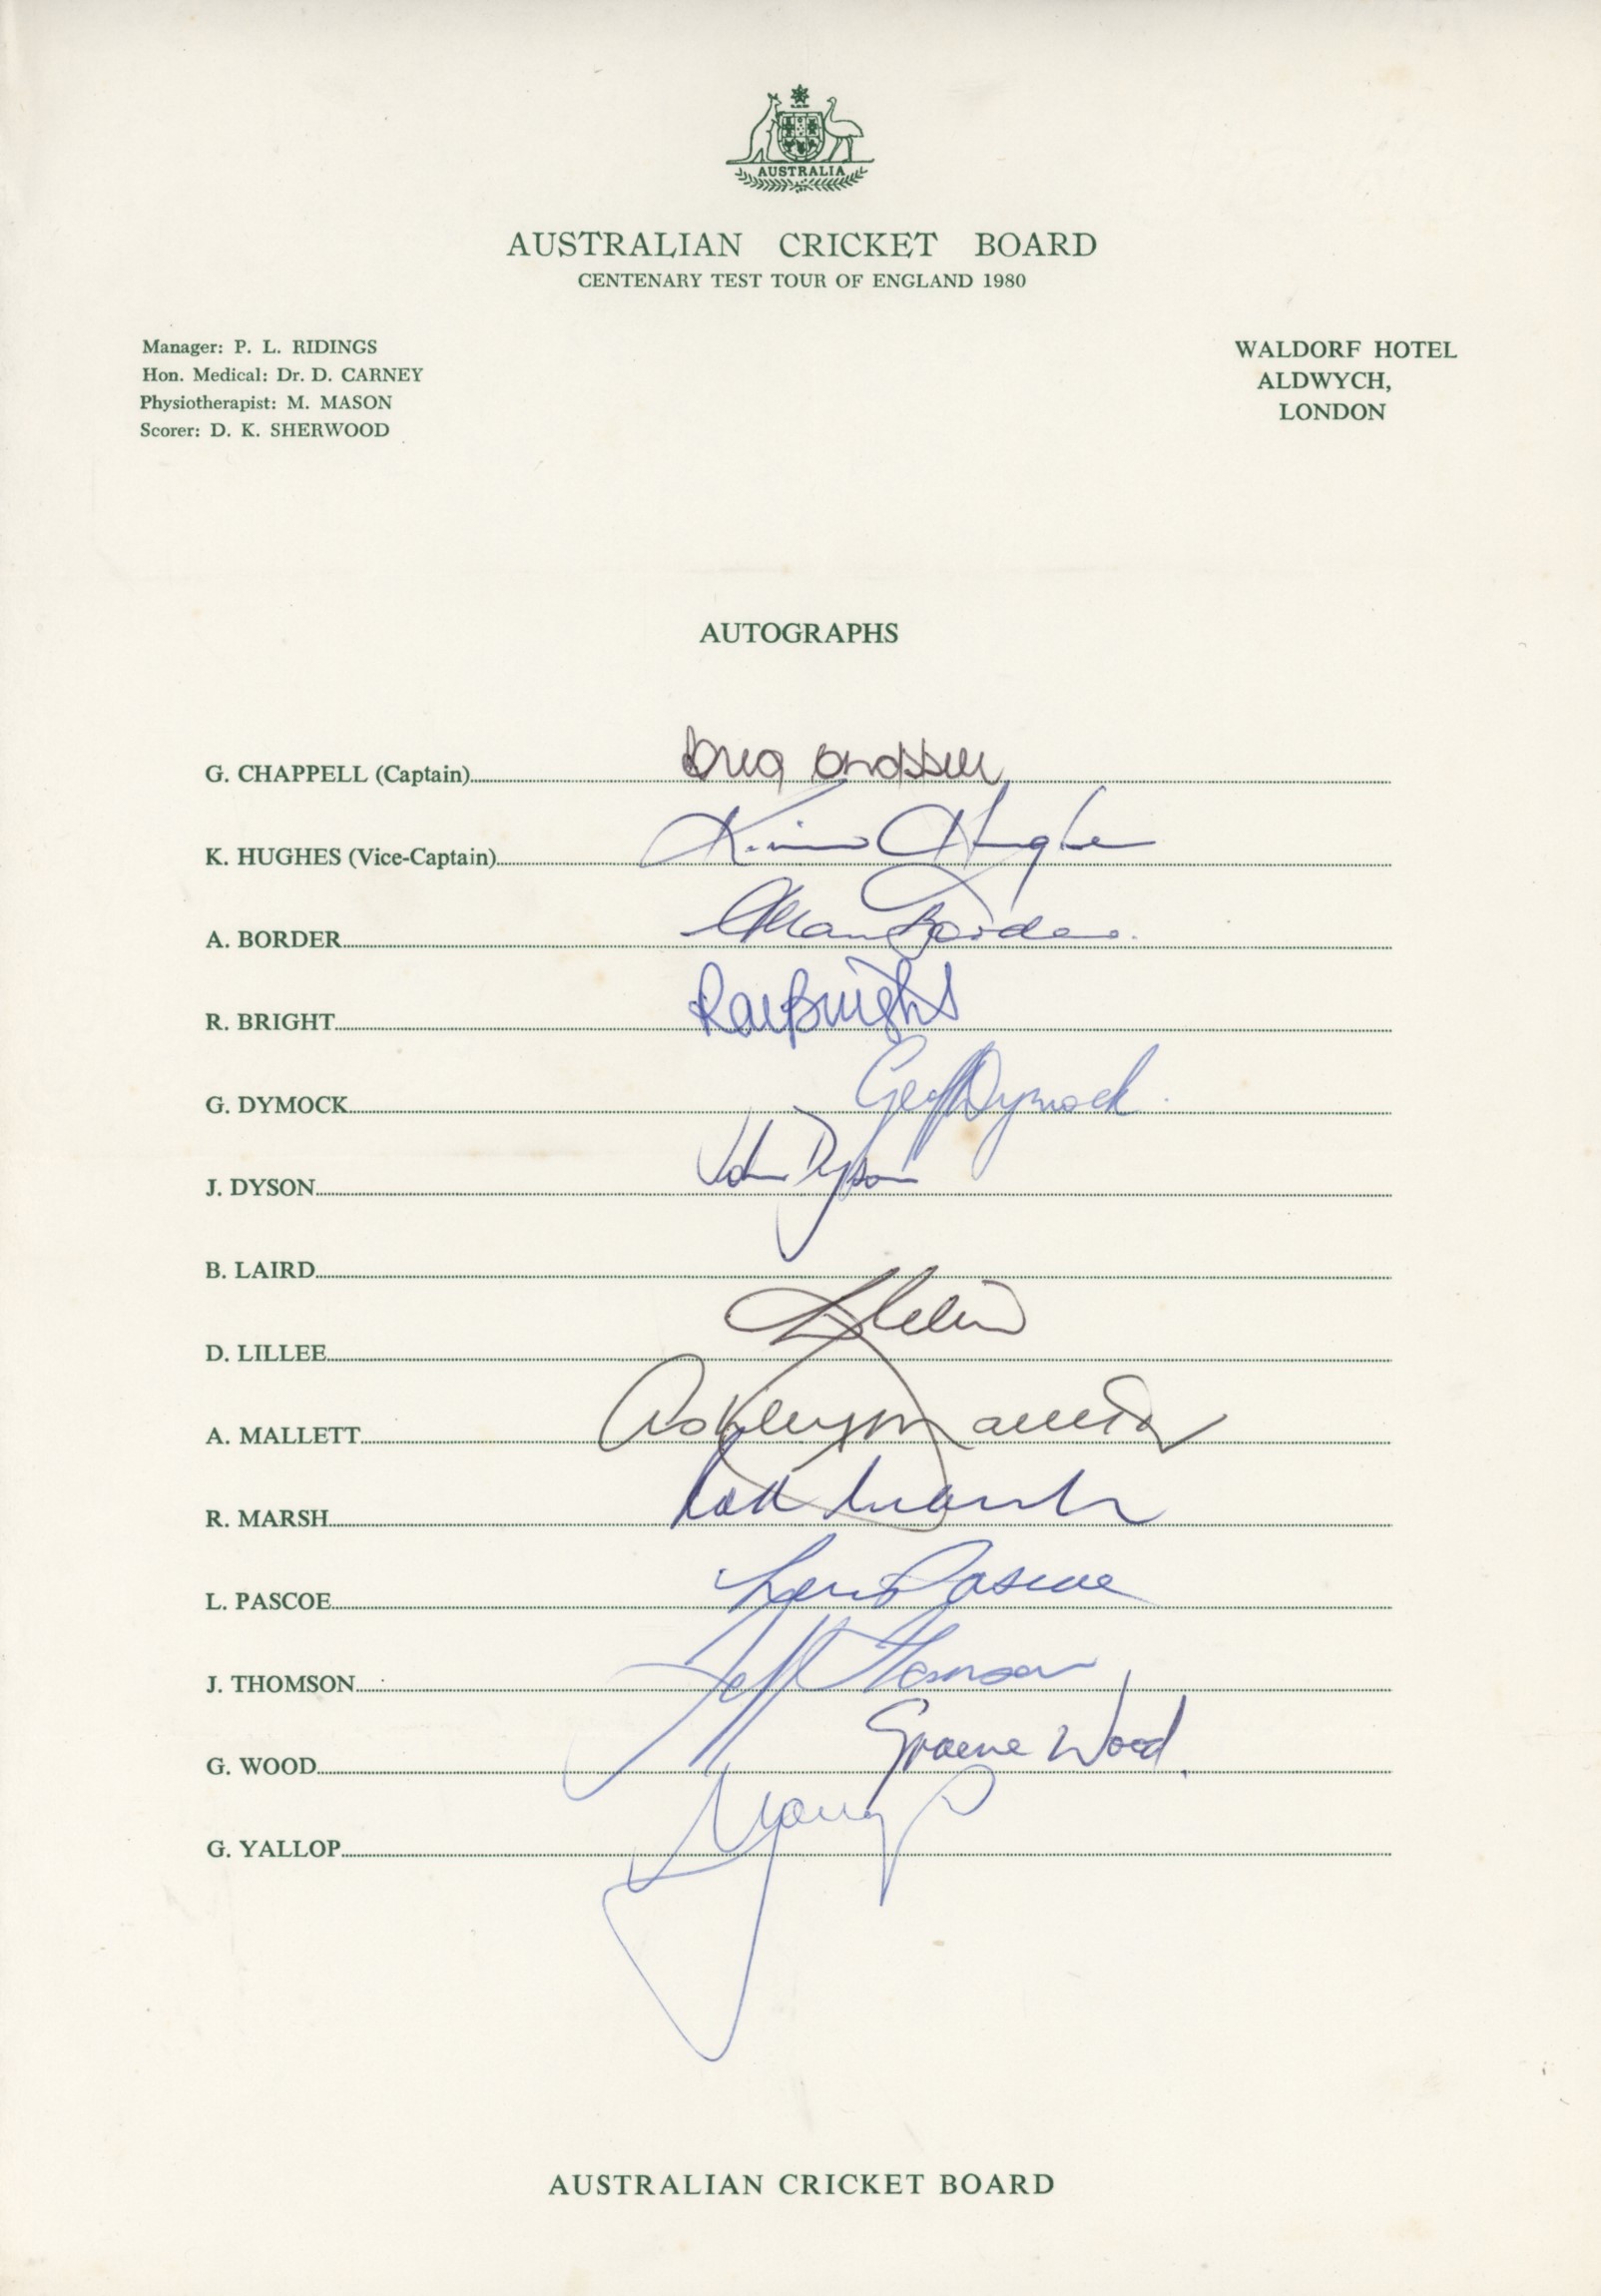 AUSTRALIA
AUSTRALIAN CRICKET BOARD
CENTENARY TEST TOUR OF ENGLAND 1980
Manager: P. L. RIDINGS
Hon. Medical: Dr. D. CARNEY
Physiotherapist: M. MASON
Scorer: D. K. SHERWOOD
WALDORF HOTEL
ALDWYCH,
LONDON
AUTOGRAPHS
G. CHAPPELL (Captain) Greg Chappell
K. HUGHES (Vice-Captain) Kim Hughes
A. BORDER Allan Border
R. BRIGHT Ray Bright
G. DYMOCK Geoff Dymock
J. DYSON John Dyson
B. LAIRD
D. LILLEE
A. MALLETT Ashley Mallett
R. MARSH Rod Marsh
L. PASCOE Len Pascoe
J. THOMSON Jeff Thomson
G. WOOD Graeme Wood
G. YALLOP
AUSTRALIAN CRICKET BOARD